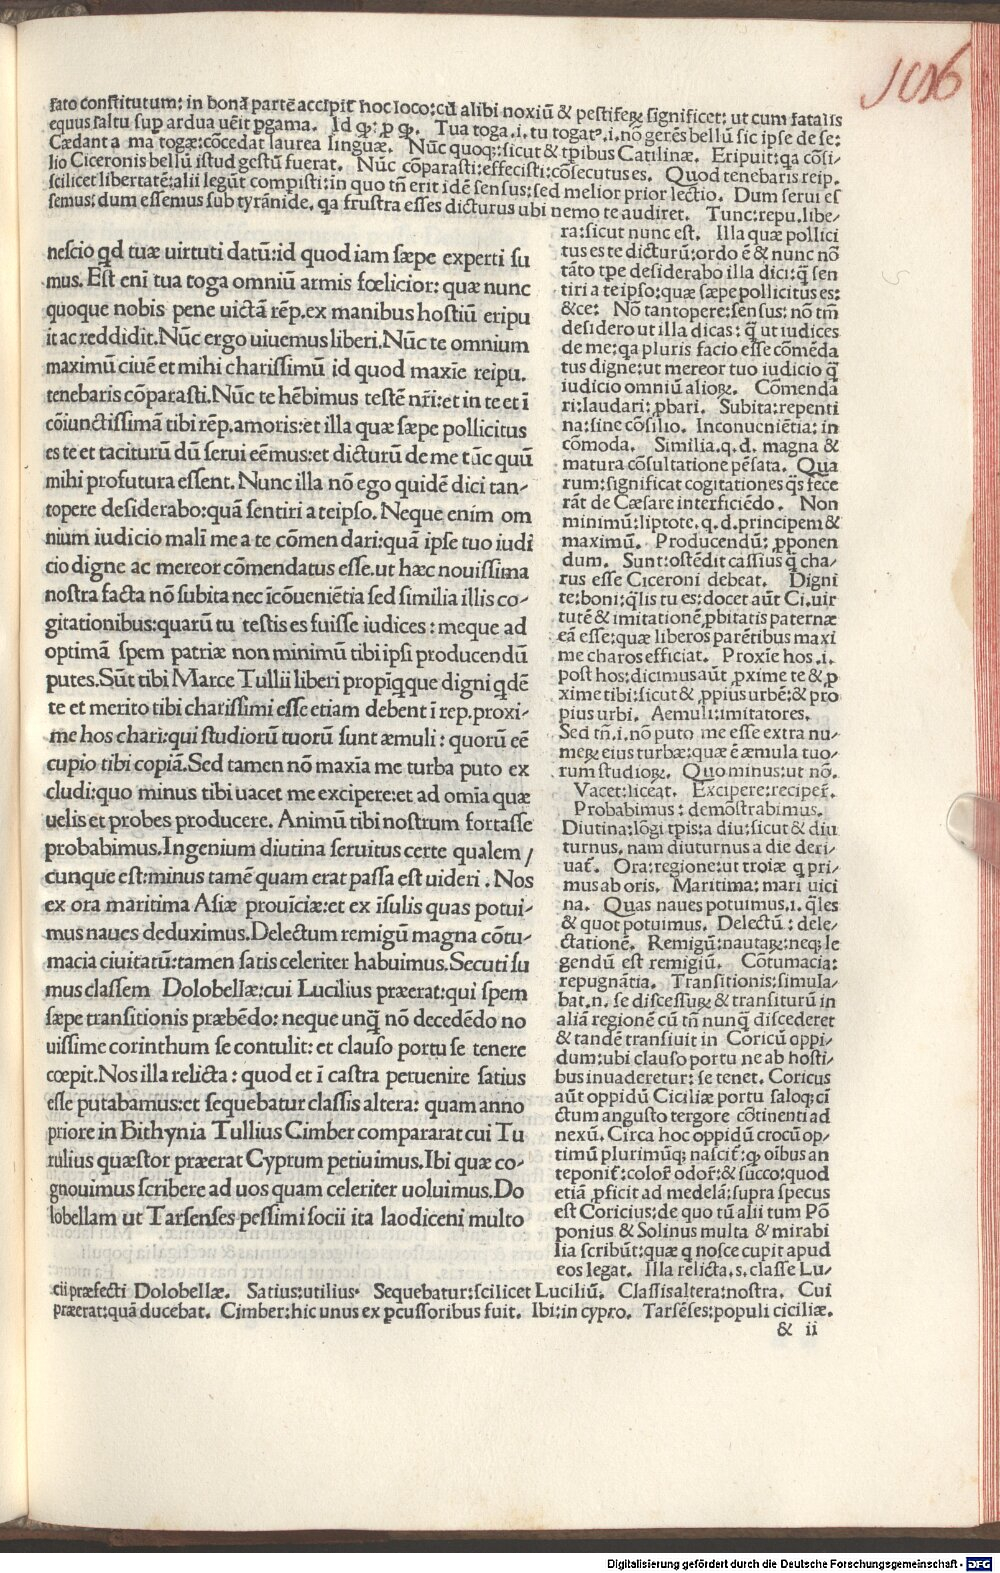 1016
fato constitutum: in bonā partē accipit̄ hoc loco: cū alibi noxiū & pestiferꝝ significet: ut cum fatalis
equus saltu suꝑ ardua uēit ꝑgama. Id ꝙ: ꝑ ꝙ. Tua toga .i. tu togatꝰ .i. nō gerēs bellū sic ipse de se:
Cædant a ma togæ: cōcedat laurea linguæ. Nūc quoqꝫ: sicut & tꝑibus Catilinæ. Eripuit: qa cōsi-
lio Ciceronis bellū istud gestū fuerat. Nūc cōparasti: effecisti: cōsecutus es. Quod tenebaris reip.
scilicet libertatē: alii legūt compisti: in quo tn̄ erit idē sensus: sed melior prior lectio. Dum serui es
semus: dum essemus sub tyrānide. qa frustra esses dicturus ubi nemo te audiret. Tunc: repu. libe-
nescio qd tuæ uirtuti datū: id quod iam sæpe experti su
mus. Est eni tua toga omniū armis fœlicior: quæ nunc
quoque nobis pene uictā rēp. ex manibus hostiū eripu
it ac reddidit. Nūc ergo uiuemus liberi. Nūc te omnium
maximū ciuē et mihi charissimū id quod maxīe reipu.
tenebaris cōparasti. Nūc te hēbimus testē nr̄i: et in te et ī
cōiunctissimā tibi rēp. amoris: et illa quæ sæpe pollicitus
es te et taciturū dū serui eēmus: et dicturū de me tūc quū
mihi profutura essent. Nunc illa nō ego quidē dici tan-
topere desiderabo: quā sentiri a teipso. Neque enim om
nium iudicio malī me a te cōmen dari: quā ipse tuo iudi
cio digne ac mereor cōmendatus esse. ut hæc nouissima
nostra facta nō subita nec īcōueniētia sed similia illis co-
gitationibus: quarū tu testis es fuisse iudices: meque ad
optimā spem patriæ non minimū tibi ipsi producendū
putes. Sūt tibi Marce Tullii liberi propīqꝗue digni qdē
te et merito tibi charissimi esse etiam debent ī rep. proxi-
me hos chari: qui studiorū tuorū sunt æmuli: quorū eē
cupio tibi copiā. Sed tamen nō maxīa me turba puto ex
cludi: quo minus tibi uacet me excipere: et ad omīa quæ
uelis et probes producere. Animū tibi nostrum fortasse
probabimus. Ingenium diutina seruitus certe qualem /
cunque est: minus tamē quam erat passa est uideri. Nos
ex ora maritima Asiæ prouīciæ: et ex īsulis quas potui-
mus naues deduximus. Delectum remigū magna cōtu-
macia ciuitatū: tamen satis celeriter habuimus. Secuti su
mus classem Dolobellæ: cui Lucilius præerat: qui spem
sæpe transitionis præbēdo: neque unq̄ nō decedēdo no
uissime corinthum se contulit: et clauso portu se tenere
cœpit. Nos illa relicta: quod et ī castra peruenire satius
esse putabamus: et sequebatur classis altera: quam anno
priore in Bithynia Tullius Cimber compararat cui Tu
rulius quæstor præerat Cyprum petiuimus. Ibi quæ co-
gnouimus scribere ad uos quam celeriter uoluimus. Do
lobellam ut Tarsenses pessimi socii ita laodiceni multo
ra: sicut nunc est. Illa quæ pollici
tus es te dicturū: ordo ē & nunc nō
tāto tꝑe desiderabo illa dici: q̄ sen
tiri a te ipso: quæ sæpe pollicitus es:
&ce: Nō tantopere: sensus: nō tm̄
desidero ut illa dicas: q̄ ut iudices
de me: qa pluris facio esse cōmēda
tus digne: ut mereor tuo iudicio q̄
iudicio omniū alioꝝ. Cōmenda
ri: laudari: ꝓbari. Subita: repenti
na: sine cōsilio. Inconueniētia: in
cōmoda. Similia. q. d. magna &
matura cōsultatione pēsata. Qua
rum: significat cogitationes qs fece
rāt de Cæsare interficiēdo. Non
minimū: liptote. q. d. principem &
maximū. Producendū: ꝓponen
dum. Sunt: ostēdit cassius q̄ cha-
rus esse Ciceroni debeat. Digni
te: boni: q̄lis tu es: docet aūt Ci. uir
tutē & imitationē ꝓbitatis paternæ
eā esse: quæ liberos parētibus maxi
me charos efficiat. Proxīe hos .i.
post hos: dicimus aūt ꝓxime te & ꝓ
xime tibi: sicut & ꝓpius urbē: & pro
pius urbi. Aemuli: imitatores.
Sed tn̄ .i. nō puto me esse extra nu-
meꝝ eius turbæ: quæ ē æmula tuo-
rum studioꝝ. Quo minus: ut nō.
Vacet: liceat. Excipere: reciper̄.
Probabimus: demōstrabimus.
Diutina: lōgi tꝑis: a diu: sicut & diu
turnus. nam diuturnus a die deri-
uat̄. Ora: regione: ut troiæ q pri-
mus ab oris. Maritima: mari uici
na. Quas naues potuimus .i. q̄les
& quot potuimus. Delectū: dele-
ctationē. Remigū: nautaꝝ: neqꝫ le
gendū est remigiū. Cōtumacia:
repugnātia. Transitionis: simula-
bat. n. se discessuꝝ & transiturū in
aliā regionē cū tn̄ nunq̄ discederet
& tandē transiuit in Coricū oppi-
dum: ubi clauso portu ne ab hosti-
bus inuaderetur: se tenet. Coricus
aūt oppidū Ciciliæ portu saloqꝫ: cī
ctum angusto tergore cōtinenti ad
nexū. Circa hoc oppidū crocū op-
timū plurimūqꝫ nascit̄: qꝫ oībus an
teponit̄: color̄ odor̄: & succo: quod
etiā ꝓficit ad medelā: supra specus
est Coricius: de quo tū alii tum Pō
ponius & Solinus multa & mirabi
lia scribūt: quæ q nosce cupit apud
eos legat. Illa relicta. s. classe Lu-
cii præfecti Dolobellæ. Satius: utilius. Sequebatur: scilicet Luciliū. Classis altera: nostra. Cui
præerat: quā ducebat. Cimber: hic unus ex ꝑcussoribus fuit. Ibi: in cypro. Tarsēses: populi ciciliæ.
& ii
Digitalisierung gefördert durch die Deutsche Forschungsgemeinschaft - DFG